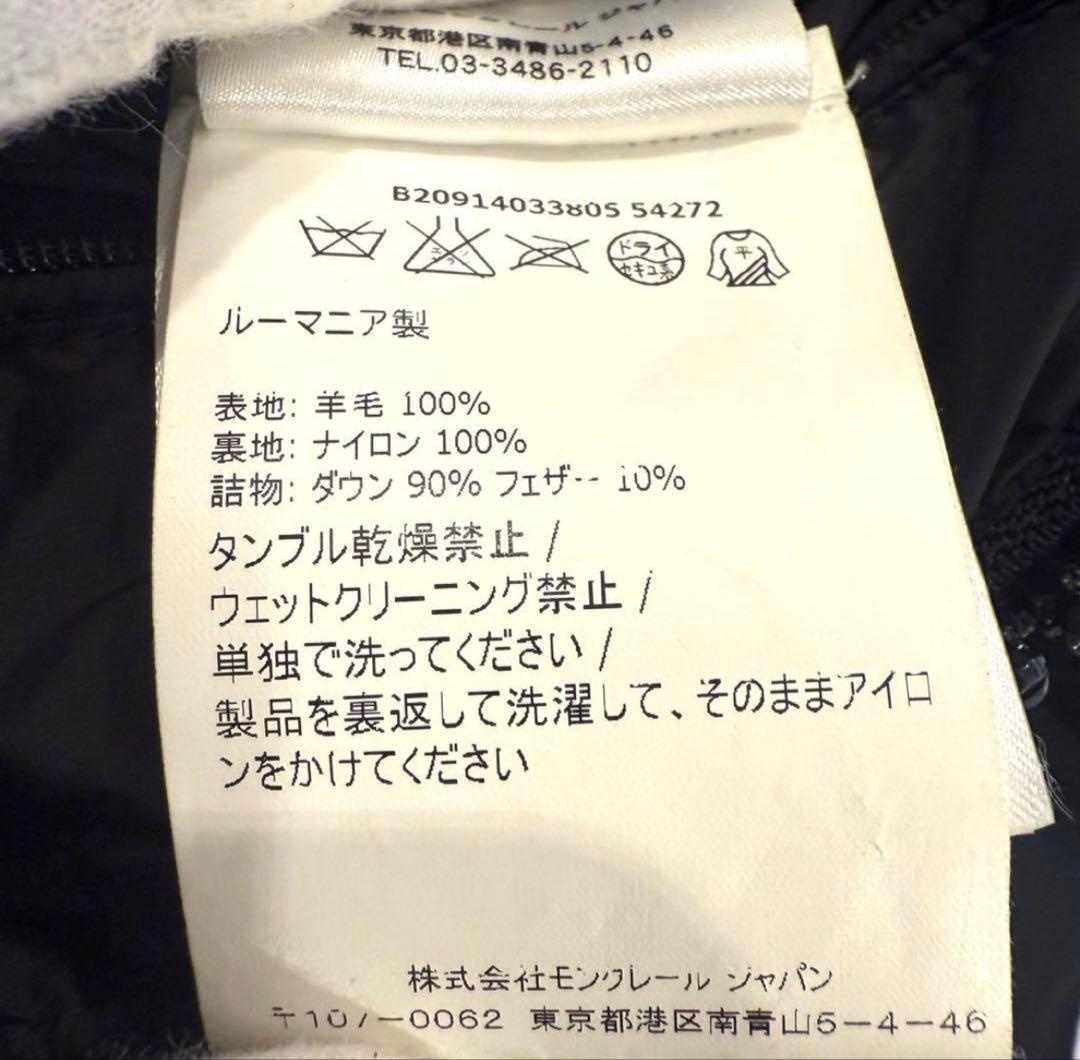 東京都港区南青山5-4-46
TEL.03-3486-2110
B20914033805 54272
エンソ
ドライ
セキユ系
平
ルーマニア製
表地: 羊毛 100%
裏地: ナイロン 100%
詰物: ダウン 90% フェザー 10%
タンブル乾燥禁止 /
ウェットクリーニング禁止 /
単独で洗ってください /
製品を裏返して洗濯して、そのままアイロ
ンをかけてください
株式会社モンクレール ジャパン
〒107-0062 東京都港区南青山5-4-46